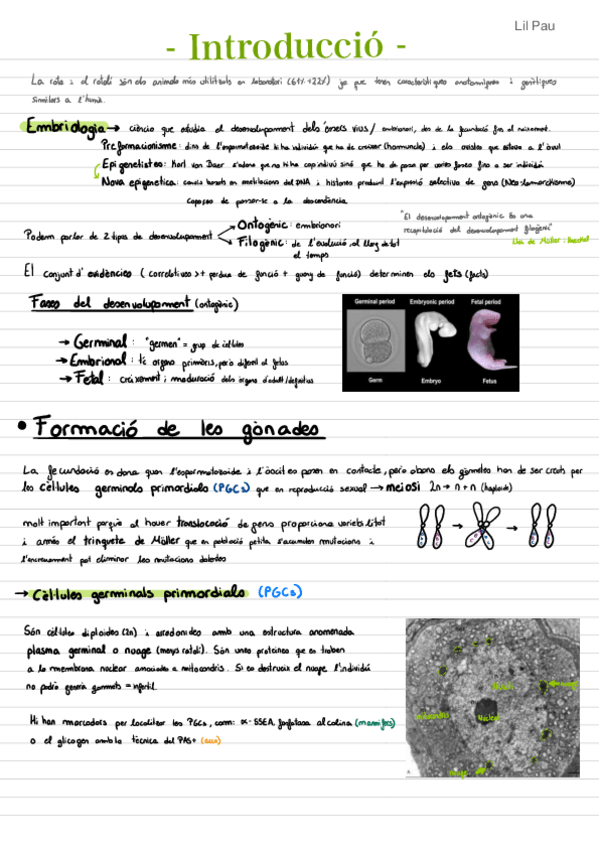 Lil Pau
- Introducció -
La rata i el ratolí són els animals més utilitzats en laboratori (61% + 22%) ja que tenen característiques anatòmiques i genètiques
similars a l'humà.
Embriologia → ciència que estudia el desenvolupament dels éssers vius / embrionari, des de la fecundació fins al naixement.
Preformacionisme: dins de l'espermatozoide hi ha individu que ha de créixer (homuncle) i els ovistes que estava a l'òvul
Epigenetistes: Karl von Baer s'adona que no hi ha cap individu sinó que ha de passar per varies fases fins a ser individu
Nova epigenètica: canvis basats en metilacions del DNA i histones produint l'expressió selectiva de gens (Neo-lamarckisme)
capaços de passar-se a la descendència
Podem parlar de 2 tipus de desenvolupament
Ontogènic: embrionari
Filogènic: de l'evolució al llarg de tot
el temps
"El desenvolupament ontogènic és una
recapitulació del desenvolupament filogènic"
Llei de Müller-Haeckel
El conjunt d'evidències (correlatives + perdua de funció + guany de funció) determinen els fets (facts)
Fases del desenvolupament (ontogènic)
→ Germinal: "germen" = grup de cèl·lules
→ Embrional: té organs primaris, però diferent al fetus
→ Fetal: creixement i maduració dels òrgans d'adult/definitius
Germinal period Embryonic period Fetal period
Germ Embryo Fetus
• Formació de les gònades
La fecundació es dona quan l'espermatozoide i l'oòcit es posen en contacte, però abans els gàmetes han de ser creats per
les cèl·lules germinals primordials (PGCs) que en reproducció sexual → meiosi 2n → n + n (haploide)
molt important perquè al haver translocació de gens proporciona varietalitat
i a més el trinquete de Müller que en població petita s'acumulen mutacions i
l'encreuament pot eliminar les mutacions dolentes
→ Cèl·lules germinals primordials (PGCs)
Són cèl·lules diploides (2n) i arrodonides amb una estructura anomenada
plasma germinal o nuage (menys ratolí). Són unes proteïnes que es troben
a la membrana nuclear associades a mitocondris. Si es destrueix el nuage l'individu
no podrà generar gàmets = infèrtil.
Hi han marcadors per localitzar les PGCs, com: α-SSEA, fosfatasa alcalina (mamífers)
o el glicogen amb la tècnica del PAS+ (aus)
Nucli
Nuclèol
mitocondris
nuage